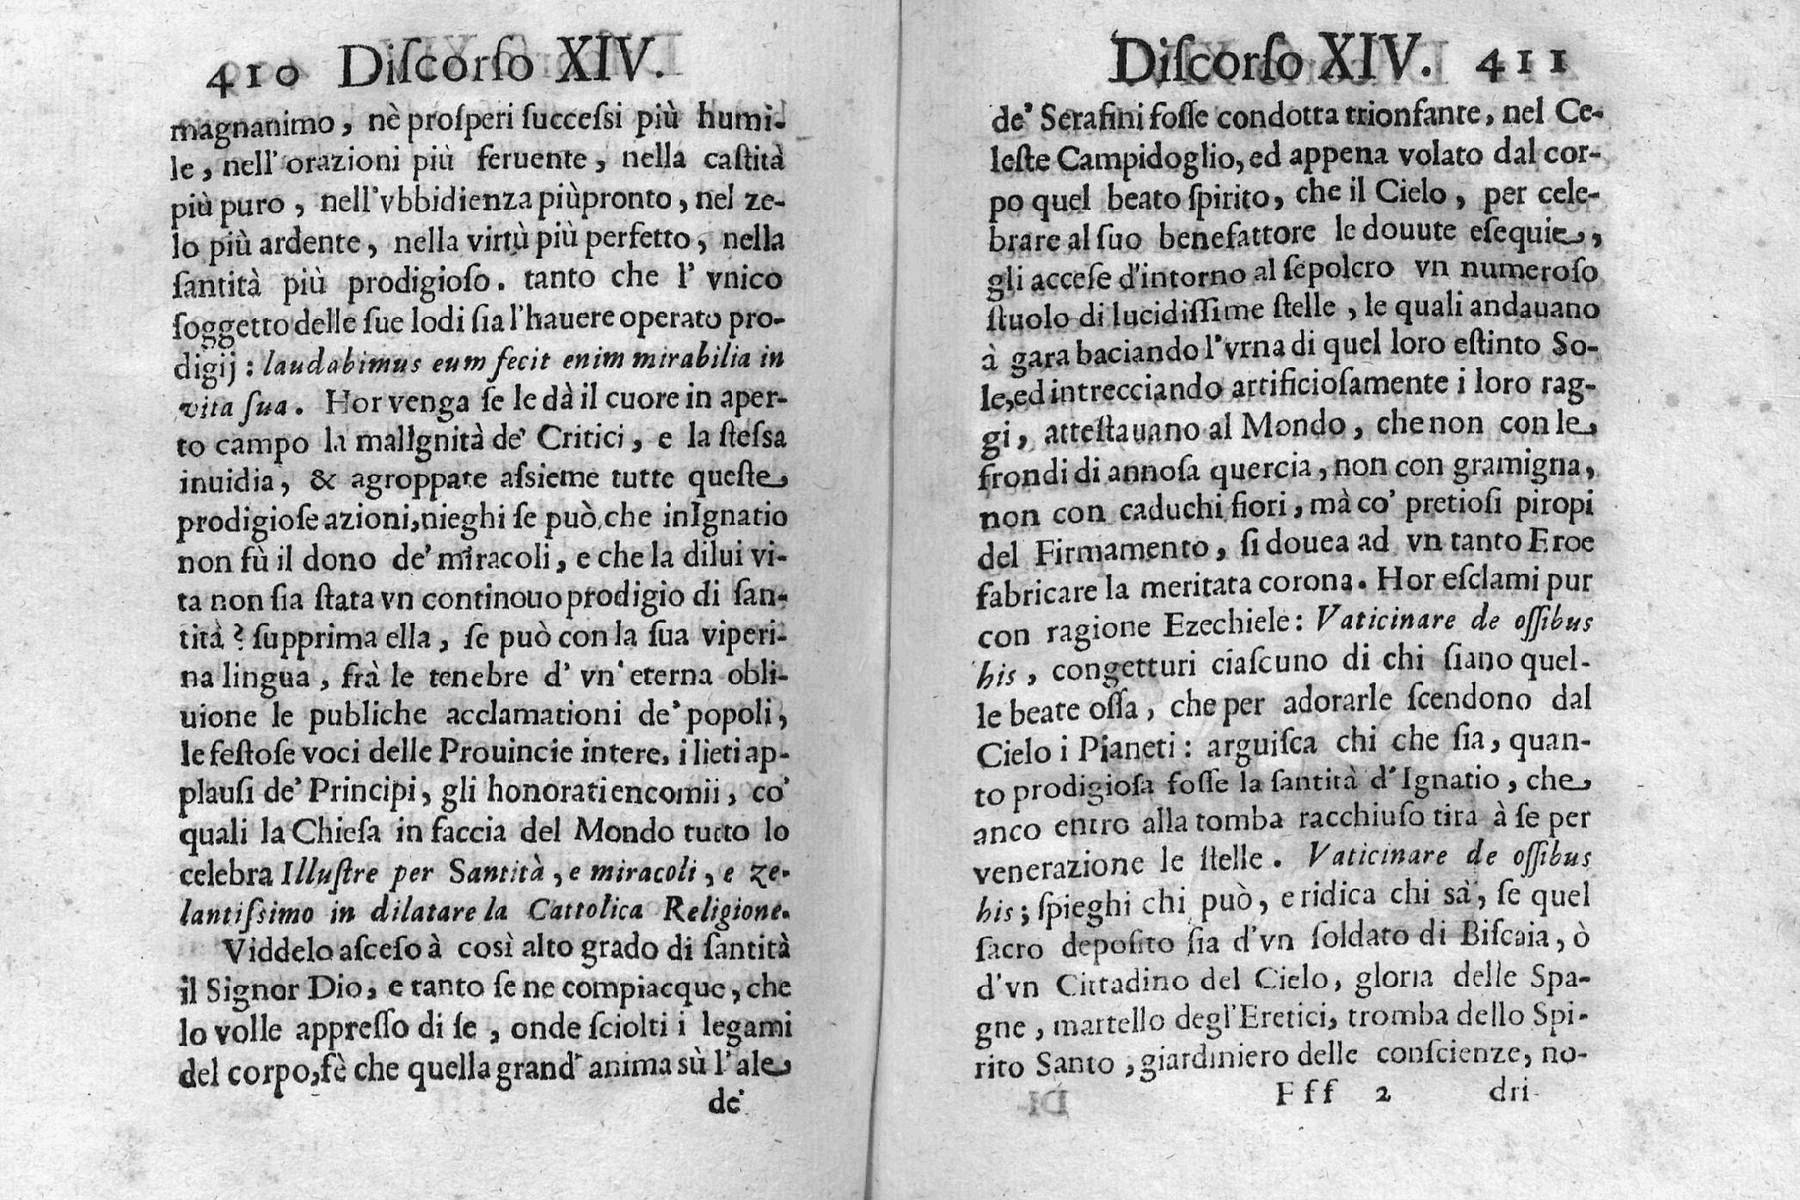 410 Diſcorſo XIV.
magnanimo, nè proſperi ſucceſsi più humi-
le, nell'orazioni più feruente, nella caſtità
più puro, nell'vbbidienza piùpronto, nel ze-
lo più ardente, nella virtù più perfetto, nella
ſantità più prodigioſo. tanto che l' vnico
ſoggetto delle ſue lodi ſia l'hauere operato pro-
digij: laudabimus eum fecit enim mirabilia in
vita ſua. Hor venga ſe le dà il cuore in aper-
to campo la malIgnità de' Critici, e la ſteſsa
inuidia, & agroppate aſsieme tutte queſte
prodigioſe azioni, nieghi ſe può, che inIgnatio
non fù il dono de' miracoli, e che la dilui vi-
ta non ſia ſtata vn continouo prodigio di ſan-
tità? ſupprima ella, ſe può con la ſua viperi-
na lingua, frà le tenebre d' vn' eterna obli-
uione le publiche acclamationi de' popoli,
le feſtoſe voci delle Prouincie intere, i lieti ap-
plauſi de' Principi, gli honorati encomii, co'
quali la Chieſa in faccia del Mondo tutto lo
celebra Illuſtre per Santità, e miracoli, e ze-
lantiſsimo in dilatare la Cattolica Religione.
Viddelo aſceſo à così alto grado di ſantità
il Signor Dio, e tanto ſe ne compiacque, che
lo volle appreſſo di ſe, onde ſciolti i legami
del corpo, fè che quella grand' anima sù l'ale
de'
Diſcorſo XIV. 411
de' Serafini foſſe condotta trionfante, nel Ce-
leſte Campidoglio, ed appena volato dal cor-
po quel beato ſpirito, che il Cielo, per cele-
brare al ſuo benefattore le douute eſequie,
gli acceſe d'intorno al ſepolcro vn numeroſo
ſtuolo di lucidiſſime ſtelle, le quali andauano
à gara baciando l'vrna di quel loro eſtinto So-
le, ed intrecciando artificioſamente i loro rag-
gi, atteſtauano al Mondo, che non con le
frondi di annoſa quercia, non con gramigna,
non con caduchi fiori, mà co' pretioſi piropi
del Firmamento, ſi douea ad vn tanto Eroe
fabricare la meritata corona. Hor eſclami pur
con ragione Ezechiele: Vaticinare de oſſibus
his, congetturi ciaſcuno di chi ſiano quel-
le beate oſſa, che per adorarle ſcendono dal
Cielo i Pianeti: arguiſca chi che ſia, quan-
to prodigioſa foſſe la ſantità d'Ignatio, che
anco entro alla tomba racchiuſo tira à ſe per
venerazione le ſtelle. Vaticinare de oſſibus
his; ſpieghi chi può, e ridica chi sà, ſe quel
ſacro depoſito ſia d'vn ſoldato di Biſcaia, ò
d'vn Cittadino del Cielo, gloria delle Spa-
gne, martello degl'Eretici, tromba dello Spi-
rito Santo, giardiniero delle conſcienze, no-
Fff 2 dri-